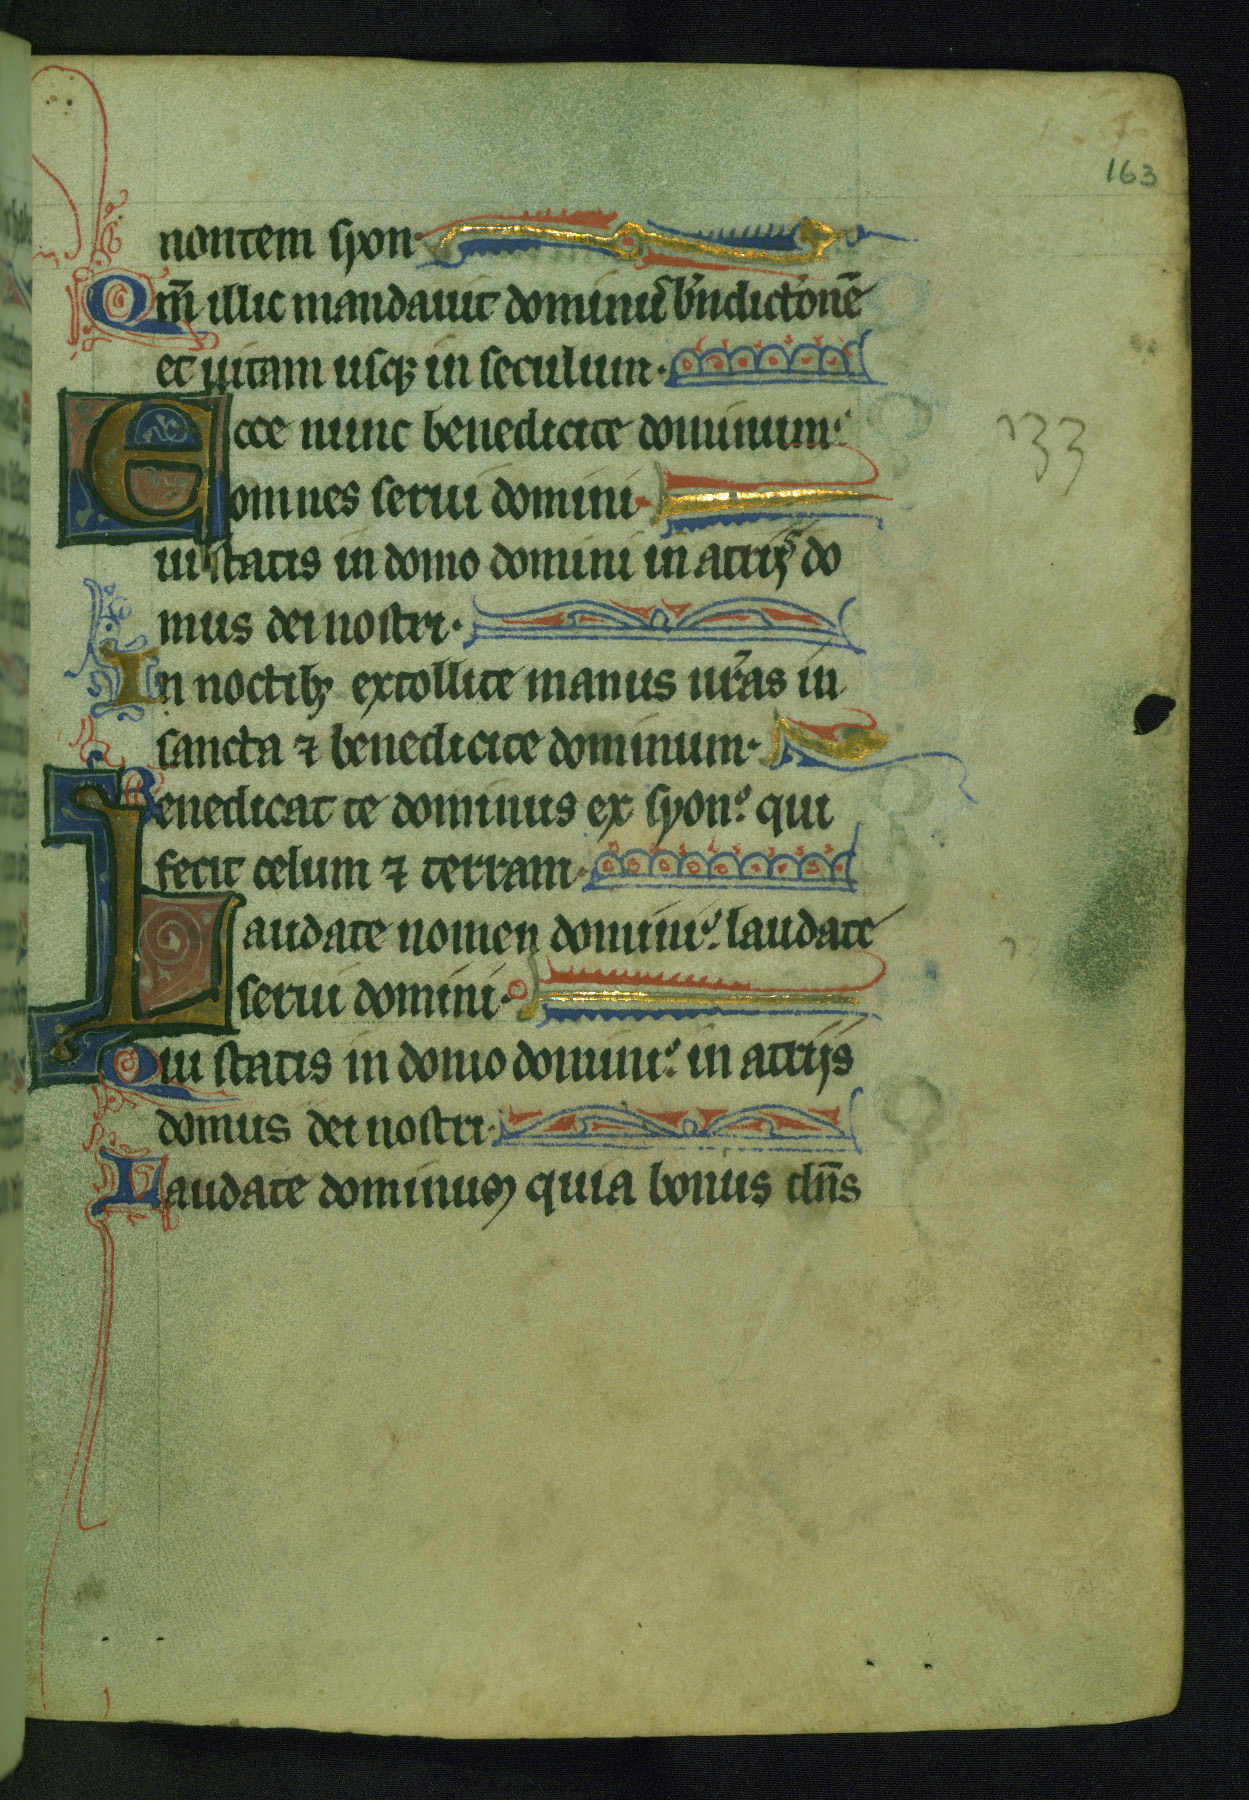 163
montem syon.
Qm̄ illic mandauit dominus b'ndictionē
et uitam usq; in seculum.
133
Ecce nunc benedicite dominum:
omnes serui domini.
ui statis in domo domini in atrijs do
mus dei nostri.
In noctib; extollite manus ur̄as in
sancta ⁊ benedicite dominum.
Benedicat te dominus ex syon: qui
fecit celum ⁊ terram.
Laudate nomen domini: laudate
serui domini.
Qui statis in domo domini: in atrijs
domus dei nostri.
Laudate dominum quia bonus dn̄s